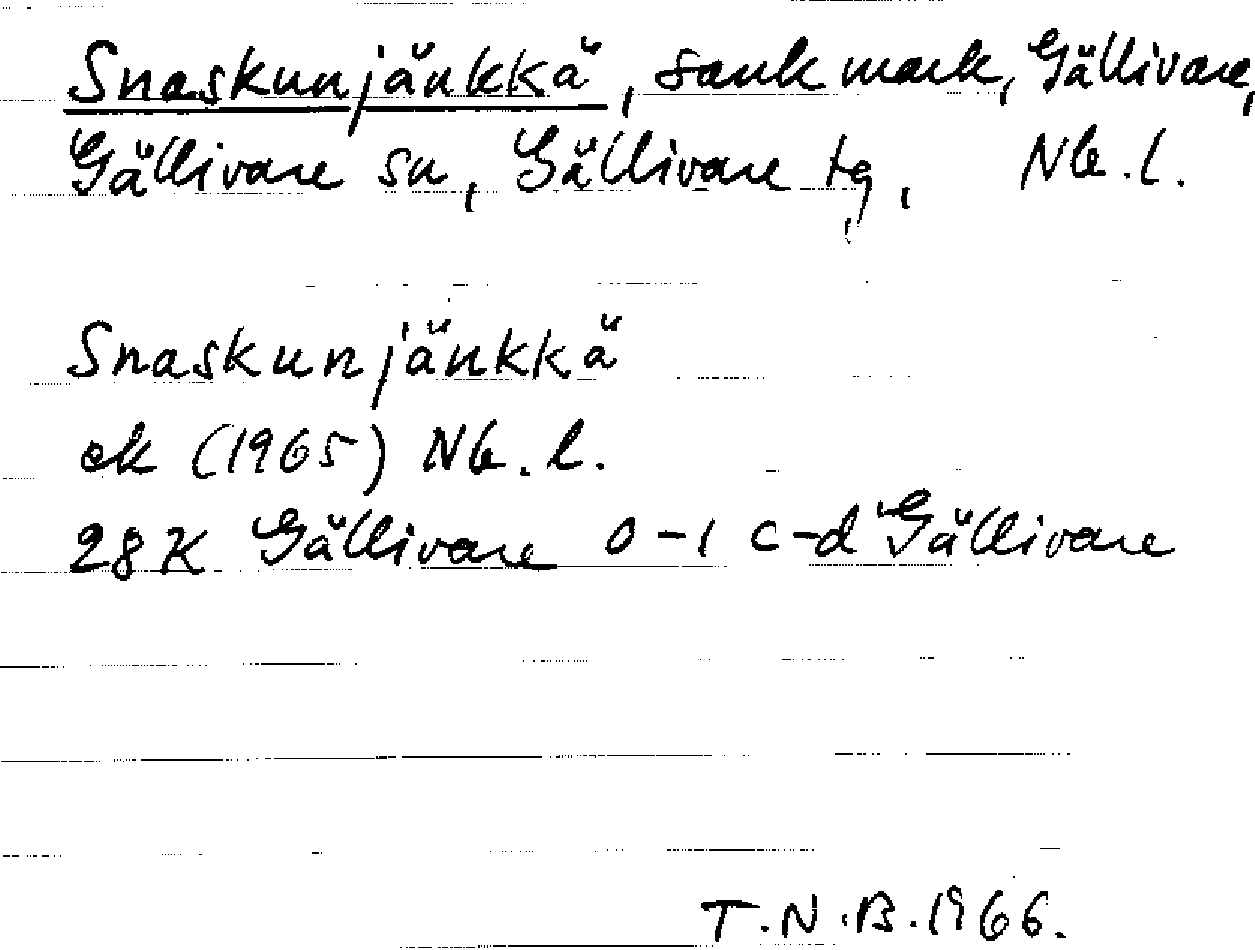 Snaskunjänkkä, sank mark, Gällivare,
Gällivare sn, Gällivare tg, Nb.l.
Snaskunjänkkä
ek (1965) Nb.l.
28K Gällivare 0-1 c-d Gällivare
T.N.B.1966.